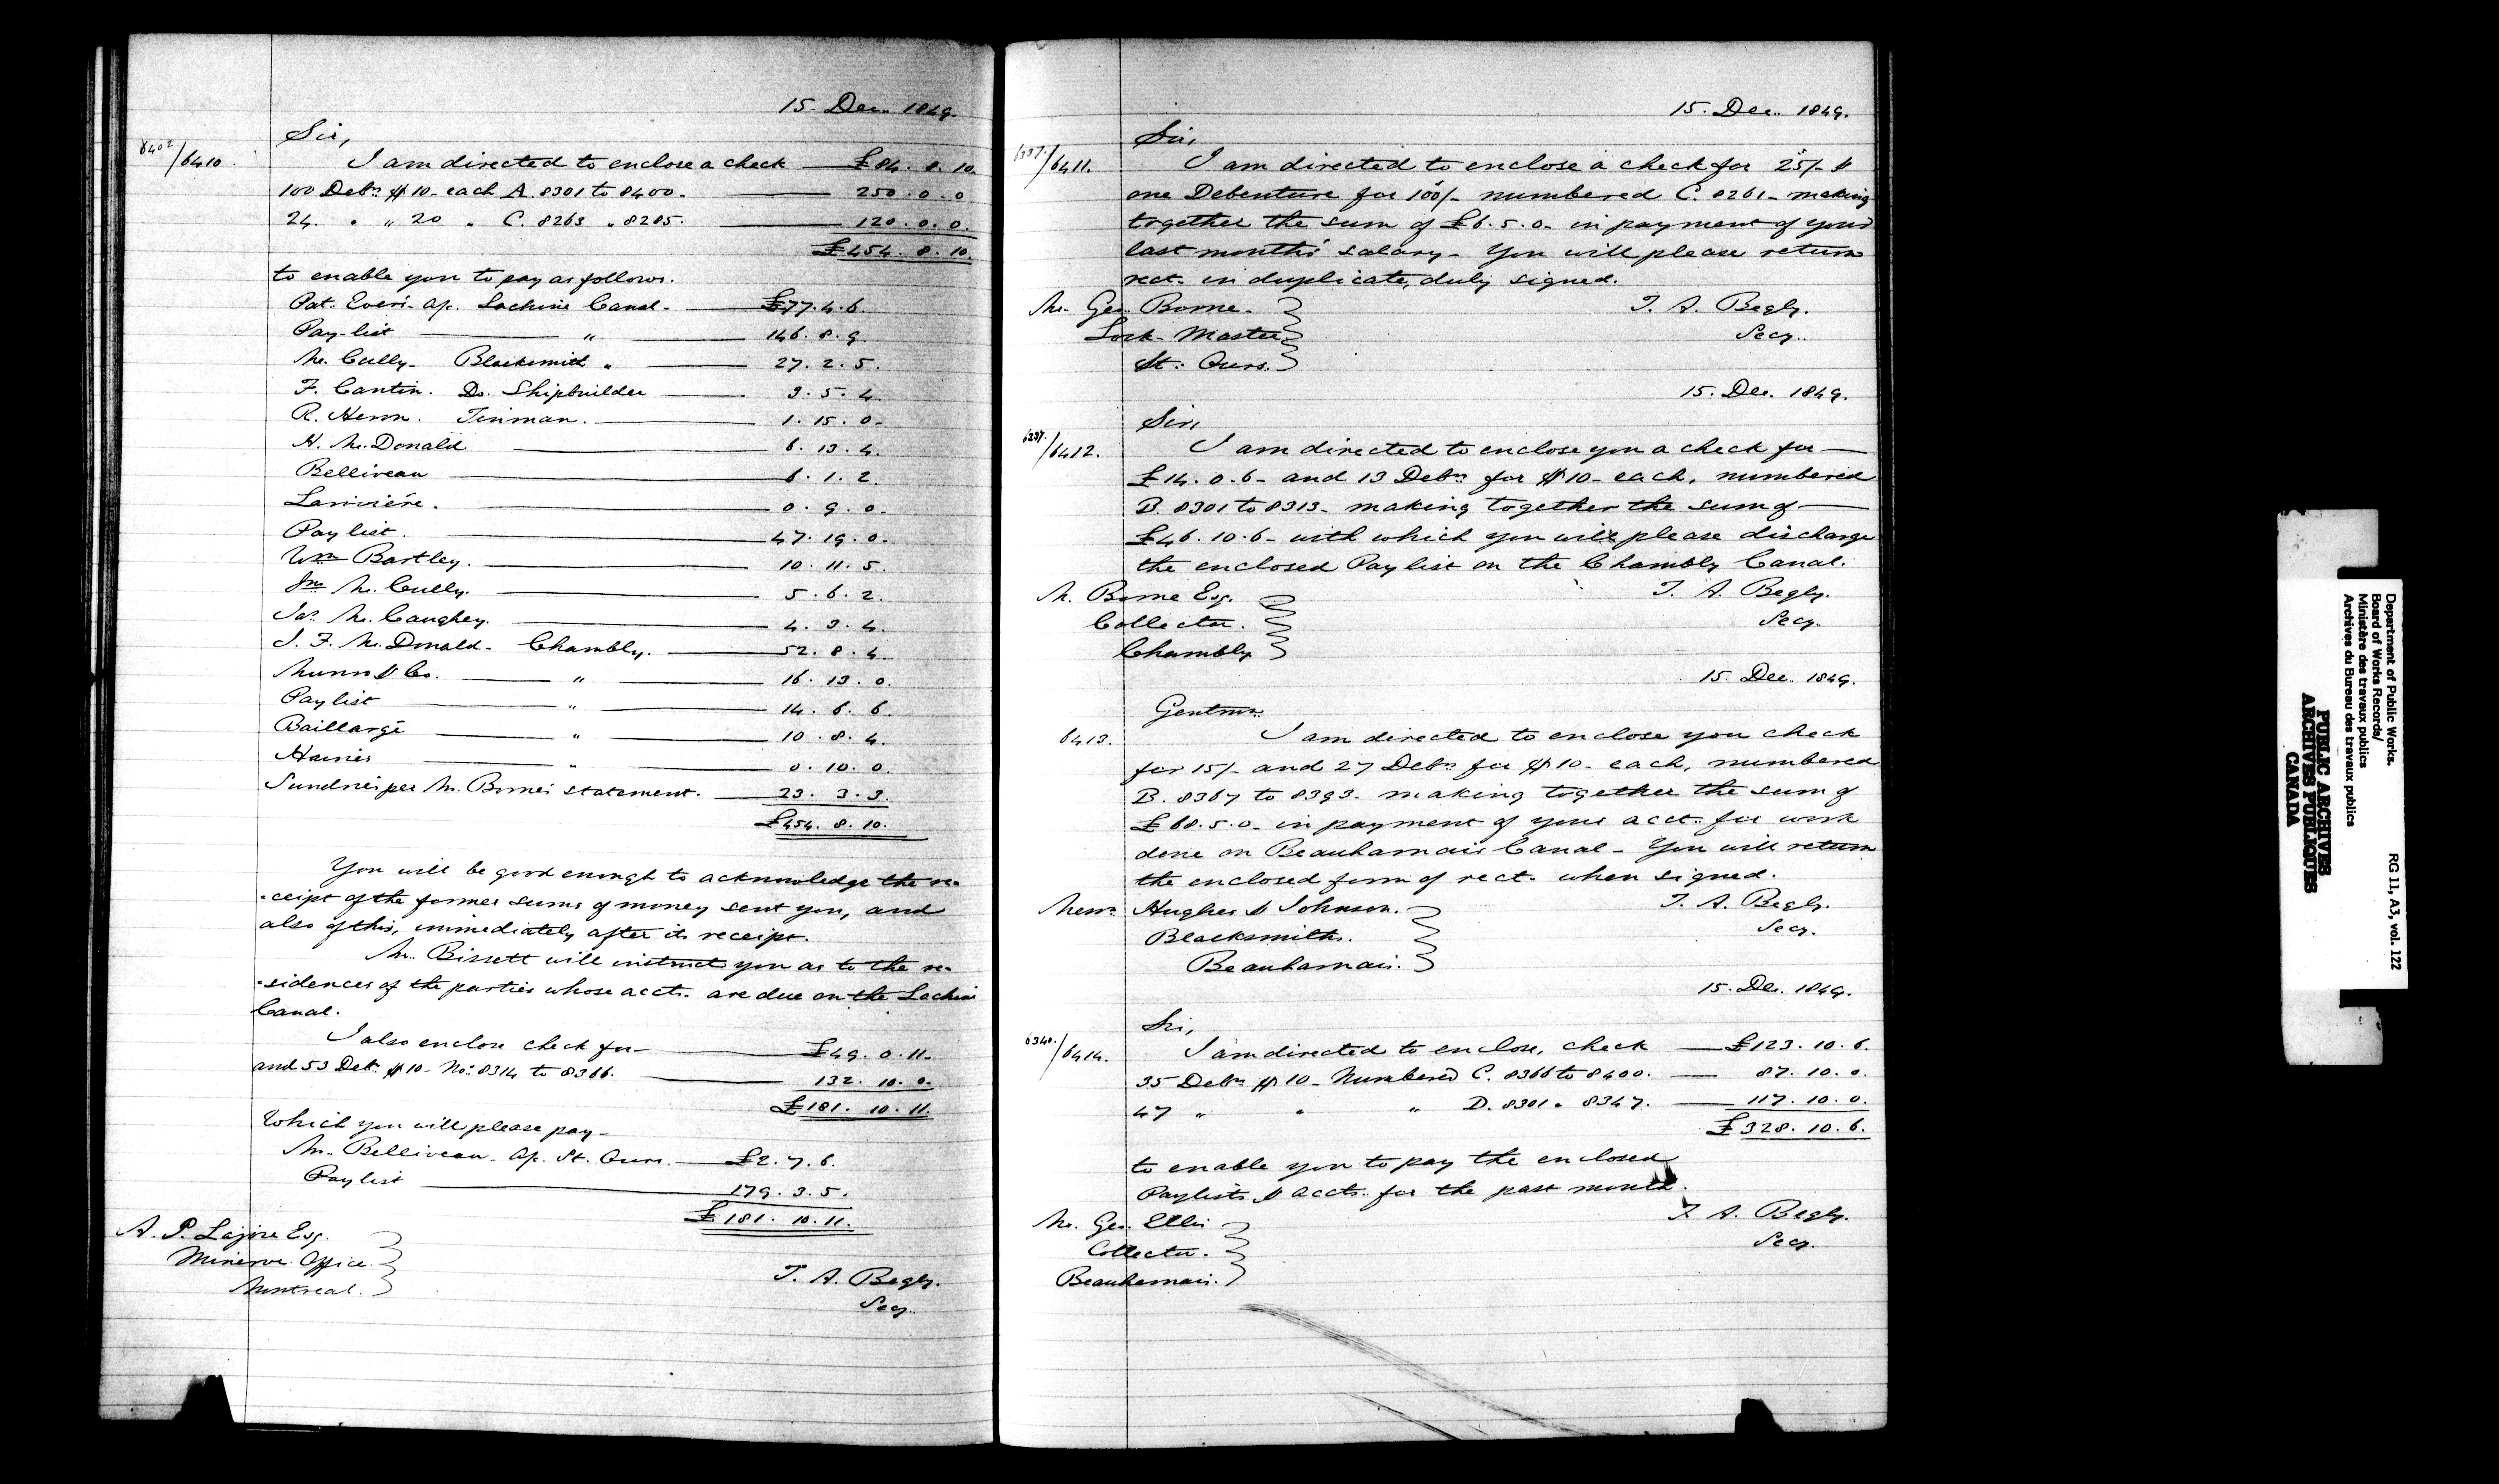 15. Dec. 1849.
Sir,
6402/6410. I am directed to enclose a check — £84. 8. 10.
100 Debrs $10- each A. 8301 to 8400. — 250. 0. 0
24. " " 20 " C. 8263 " 8285. — 120. 0. 0.
£454. 8. 10.
to enable you to pay as follows.
Pat. Evers- ap. Lachine Canal. — £77. 4. 6.
Pay-list — " — 146. 8. 9.
Mc.Cully- Blacksmith " — 27. 2. 5.
F. Cantin. Do. Shipbuilder — 3. 5. 4.
R. Heron. Tinman. — 1. 15. 0-
H. Mc.Donald — 6. 13. 4.
Belliveau — 6. 1. 2.
Larivière. — 0. 9. 0.
Pay list. — 47. 19. 0-
Wm Bartley. — 10. 11. 5.
Jno Mc.Cully. — 5. 6. 2.
Jas. Mc.Caughey. — 4. 3. 4.
J. F. Mc.Donald- Chambly. — 52. 8. 4.
Munro & Co. — " — 16. 13. 0.
Pay list — " — 14. 6. 6.
Baillargé — " — 10. 8. 4.
Haines — " — 0. 10. 0.
Sundries per Mr. Borne's statement. — 23. 3. 3.
£454. 8. 10.
You will be good enough to acknowledge the re-
-ceipt of the former sums of money sent you, and
also of this, immediately after its receipt.
Mr. Bissett will instruct you as to the re-
-sidences of the parties whose accts. are due on the Lachine
Canal.
I also enclose check for — £49. 0. 11-
and 53 Debrs $10- Nos. 8314 to 8366. — 132. 10. 0.
£181. 10. 11.
Which you will please pay-
Mr. Belliveau- ap. St. Ours. — £2. 7. 6.
Pay list — 179. 3. 5.
£181. 10. 11.
A. P. Lajoie Esq.
Minerve Office
Montreal.
T. A. Begly.
Secy.
15. Dec. 1849.
Sir,
6411. I am directed to enclose a check for 25/- &
one Debenture for 100/- numbered C. 8261- making
together the sum of £6. 5. 0- in payment of your
last months' salary- You will please return
rect. in duplicate, duly signed.
Mr. Geo. Borne. T. A. Begly.
Lock-Master Secy.
St. Ours.
15. Dec. 1849.
Sir,
6412. I am directed to enclose you a check for —
£14. 0. 6- and 13 Debrs for $10- each, numbered
B. 8301 to 8313- making together the sum of —
£46. 10. 6- with which you will please discharge
the enclosed Pay list on the Chambly Canal.
M. Borne Esq. T. A. Begly.
Collector. Secy.
Chambly
15. Dec. 1849.
Gentmn.
6413. I am directed to enclose you check
for 15/- and 27 Debrs for $10- each, numbered
B. 8367 to 8393- making together the sum of
£68. 5. 0- in payment of your acct. for work
done on Beauharnois Canal- You will return
the enclosed form of rect. when signed.
Messrs Hughes & Johnson. T. A. Begly.
Blacksmiths. Secy.
Beauharnois.
15. Dec. 1849.
Sir,
6340./6414. I am directed to enclose, check — £123. 10. 6.
35 Debrs $10- Numbered C. 8366 to 8400. — 87. 10. 0.
47 " " " D. 8301 " 8347. — 117. 10. 0.
£328. 10. 6.
to enable you to pay the enclosed
Paylists & accts. for the past month.
Mr. Geo. Ellis T. A. Begly.
Collector. Secy.
Beauharnois.
Department of Public Works.
Board of Works Records/
Ministère des travaux publics
Archives du Bureau des travaux publics
RG 11, A3, vol. 122
PUBLIC ARCHIVES
ARCHIVES PUBLIQUES
CANADA